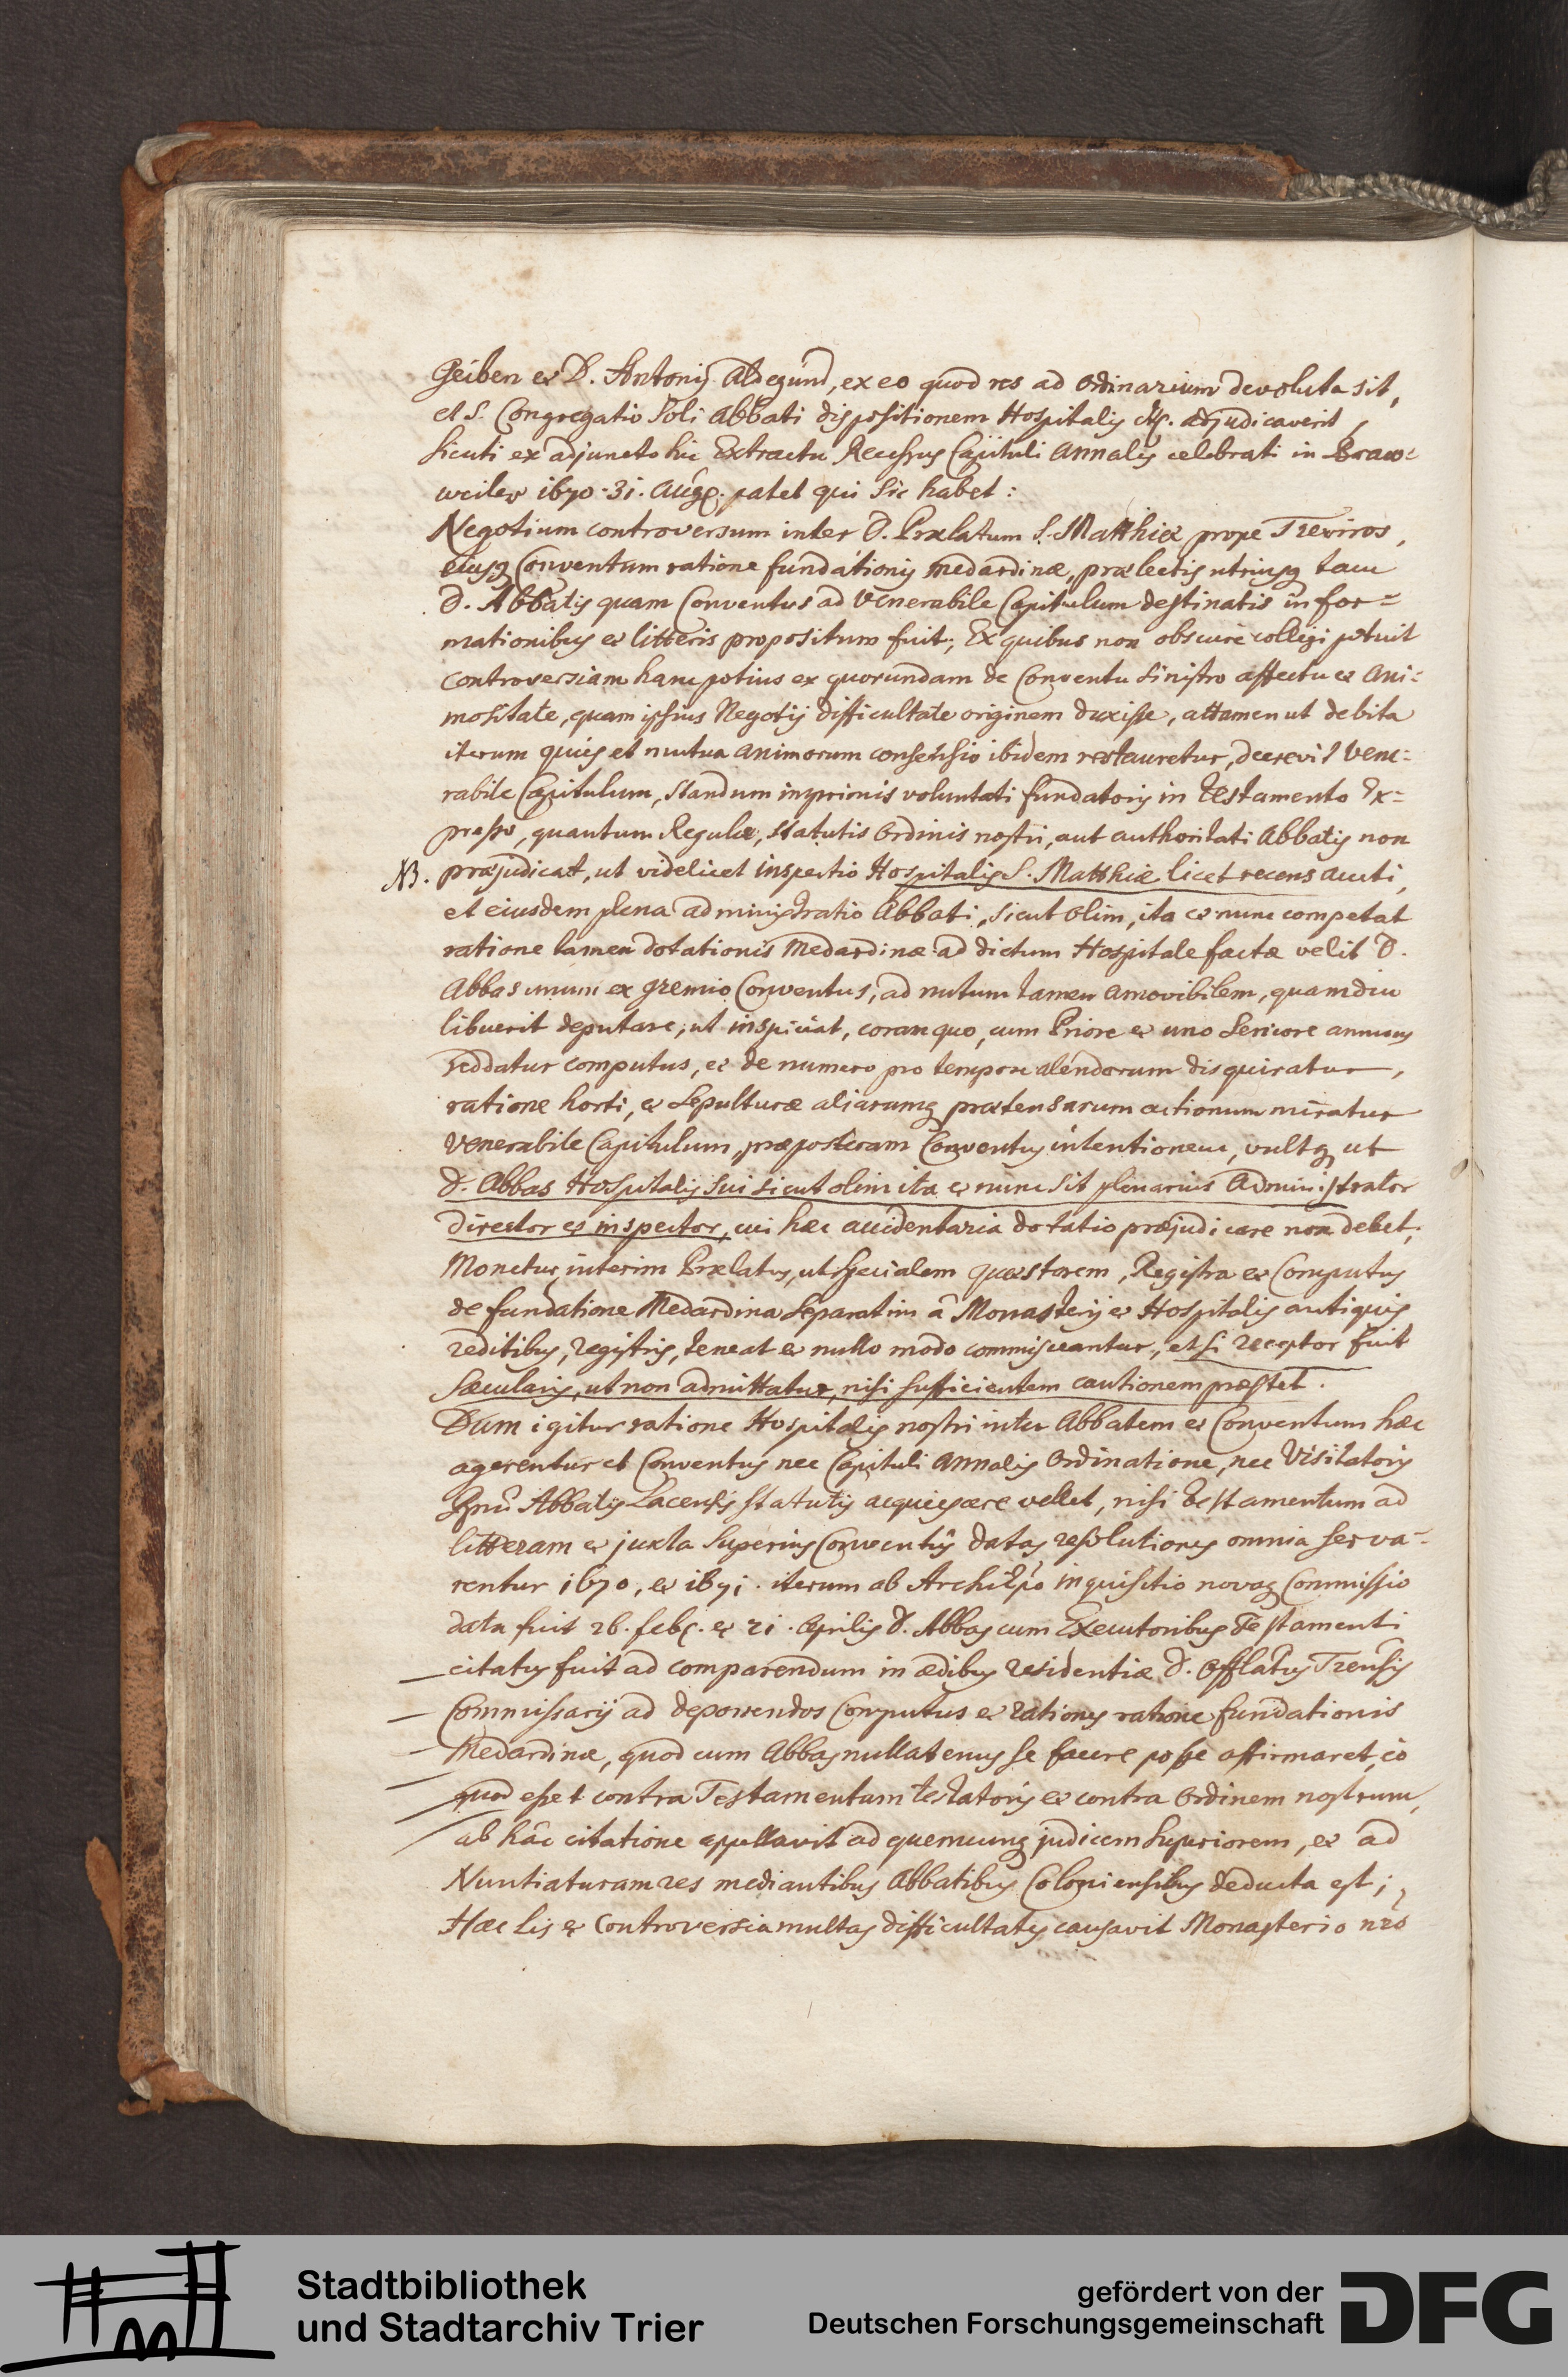 Geiben et D. Antonij Aldegund, ex eo quod res ad ordinarium devoluta sit,
et S. Congregatio soli Abbati dispositionem Hospitalis adjudicaverit,
sicuti ex adjuncto hic Extractu Recessus Capituli Annalis celebrati in Braw=
weiler 1670. 31. Aug. patet qui sic habet:
Negotium controversum inter D. Prælatum S. Matthiæ prope Treviros,
eiusq Conventum ratione fundationis Medardinæ, prælectis utriusq tam
D. Abbatis quam Conventus ad Venerabile Capitulum destinatis infor=
mationibus et litteris propositum fuit; Ex quibus non obscure colligi potuit
controversiam hanc potius ex quorundam de Conventu sinistro affectu et ani=
mositate, quam ipsius Negotij difficultate originem duxisse, attamen ut debita
iterum quies et mutua animorum consensio ibidem restauretur, decrevit Vene=
rabile Capitulum, standum inprimis voluntati fundatoris in Testamento Ex=
presso, quantum Regulæ, statutis ordinis nostri, aut authoritati Abbatis non
NB. præjudicat, ut videlicet inspectio Hospitalis S. Matthiæ licet recens aucti,
et eiusdem plena administratio Abbati, sicut olim, ita et nunc competat
ratione tamen dotationis Medardinæ ad dictum Hospitale factæ velit D.
Abbas unum ex gremio Conventus, ad nutum tamen amovibilem, quamdiu
libuerit deputare, ut inspiciat, coram quo, cum Priore et uno Seniore annuus
reddatur computus, et de numero pro tempore alendorum disquiratur,
ratione horti, et sepulturæ aliarumq prætensarum actionum miratur
Venerabile Capitulum, præposteram Conventus intentionem, vultq ut
D. Abbas Hospitalis sui sicut olim ita et nunc sit plenarius Administrator
director et inspector, cui hæc accidentaria dotatio præjudicare non debet;
Monetur interim Prælatus, ut specialem quæstorem, Registra et Computus
de fundatione Medardina separatim à Monasterij et Hospitalis antiquis
reditibus, registris, teneat et nullo modo commisceantur, et si receptor fuit
sæcularis, ut non admittatur, nisi sufficientem cautionem præstet.
Dum igitur ratione Hospitalis nostri inter Abbatem et Conventum hæc
agerentur et Conventus nec Capituli Annalis ordinatione, nec Visitatoris
Abbatis Lacensis statutis acquiescere vellet, nisi testamentum ad
litteram et juxta superius Conventûs datas resolutiones omnia serva=
rentur 1670, et 1671. iterum ab Archiepo inquisitio novaq Commissio
data fuit 26. feb. et 21. Aprilis D. Abbas cum Executoribus Testamenti
citatus fuit ad comparendum in ædibus residentiæ D. Offlatus Trensis
Commissarij ad deponendos Computus et rationes ratione fundationis
Medardinæ, quod cum Abbas nullatenus se facere posse affirmaret, eò
quod esset contra Testamentum testatoris et contra ordinem nostrum,
ab hâc citatione appellavit ad quemcunq judicem superiorem, et ad
Nuntiaturam res mediantibus Abbatibus Coloniensibus deducta est;
Hæc lis et controversia multas difficultates causavit Monasterio nro
Stadtbibliothek
und Stadtarchiv Trier
gefördert von der
Deutschen Forschungsgemeinschaft
DFG